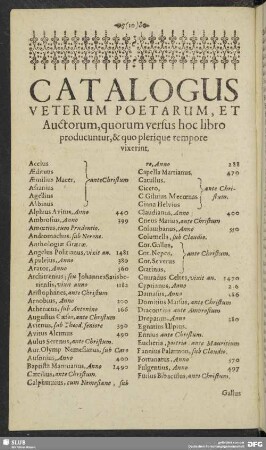 CATALOGUS
VETERUM POETARUM, ET
Auctorum, quorum versus hoc libro
producuntur, & quo plerique tempore
vixerint.
Accius
Ædituus
Æmilius Macer, ante Christum
Afranius
Agellius
Albinus
Alphius Avitus, Anno 440
Ambrosius, Anno 399
Amœnus, cum Prudentio.
Andromachus, sub Nerone.
Anthologiæ Græcæ.
Angelus Politianus, vixit an. 1481
Apulejus, Anno 389
Arator, Anno 560
Archithrenius, seu Johannes
Aristophanes, ante Christum
Arnobius, Anno 300
Athenæus, sub Antonino 166
Augustus Cæsar, ante Christum
Avienus, sub Theod. seniore 390
Avitus Alcimus 490
Aulus Serenus, ante Christum.
Aur. Olymp. Nemesianus, sub Caro
Ausonius, Anno 400
Baptista Mantuanus, Anno 1490
Cæcilius, ante Christum.
Calphurnius, cum Nemesiano, sub
re, Anno 288
Capella Martianus, 470
Catullus,
Cicero, ante Christum.
C. Cilnius Mecœnas
Cinna Helvius
Claudianus, Anno 400
Cneus Matius, ante Christum
Columbanus, Anno
Columella, sub Claudio.
Cor. Gallus,
Cor. Nepos, ante Christum.
Cor. Severus
Corinnus,
Conradus Celtes, vixit an. 1490
Cyprianus, Anno 216
Damasus, Anno
Domitius Marsus, ante Christum
Dracontius, ante Auroram
Drepanus, Anno 380
Egnatius
Ennius, ante Christum.
Eucheria, poetria, ante Mauritium
Fannius Palæmon, sub Claudio.
Fortunatus, Anno 570
Fulgentius, Anno 497
Furius Bibaculus, ante Christum.
Gallus